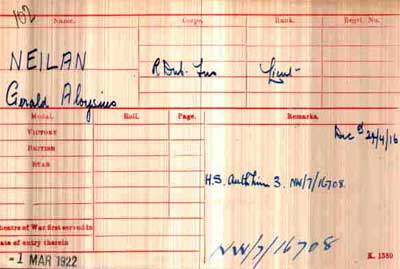 102
Name. Corps. Rank. Regtl. No.
NEILAN R. Dub. Fus Lieut-
Gerald Aloysius
Medal. Roll. Page. Remarks.
VICTORY Dec d 24/4/16
BRITISH
STAR
H.S. NW/7/16708.
Theatre of War first served in
Date of entry therein NW/7/16708
-1 MAR 1922 K. 1380